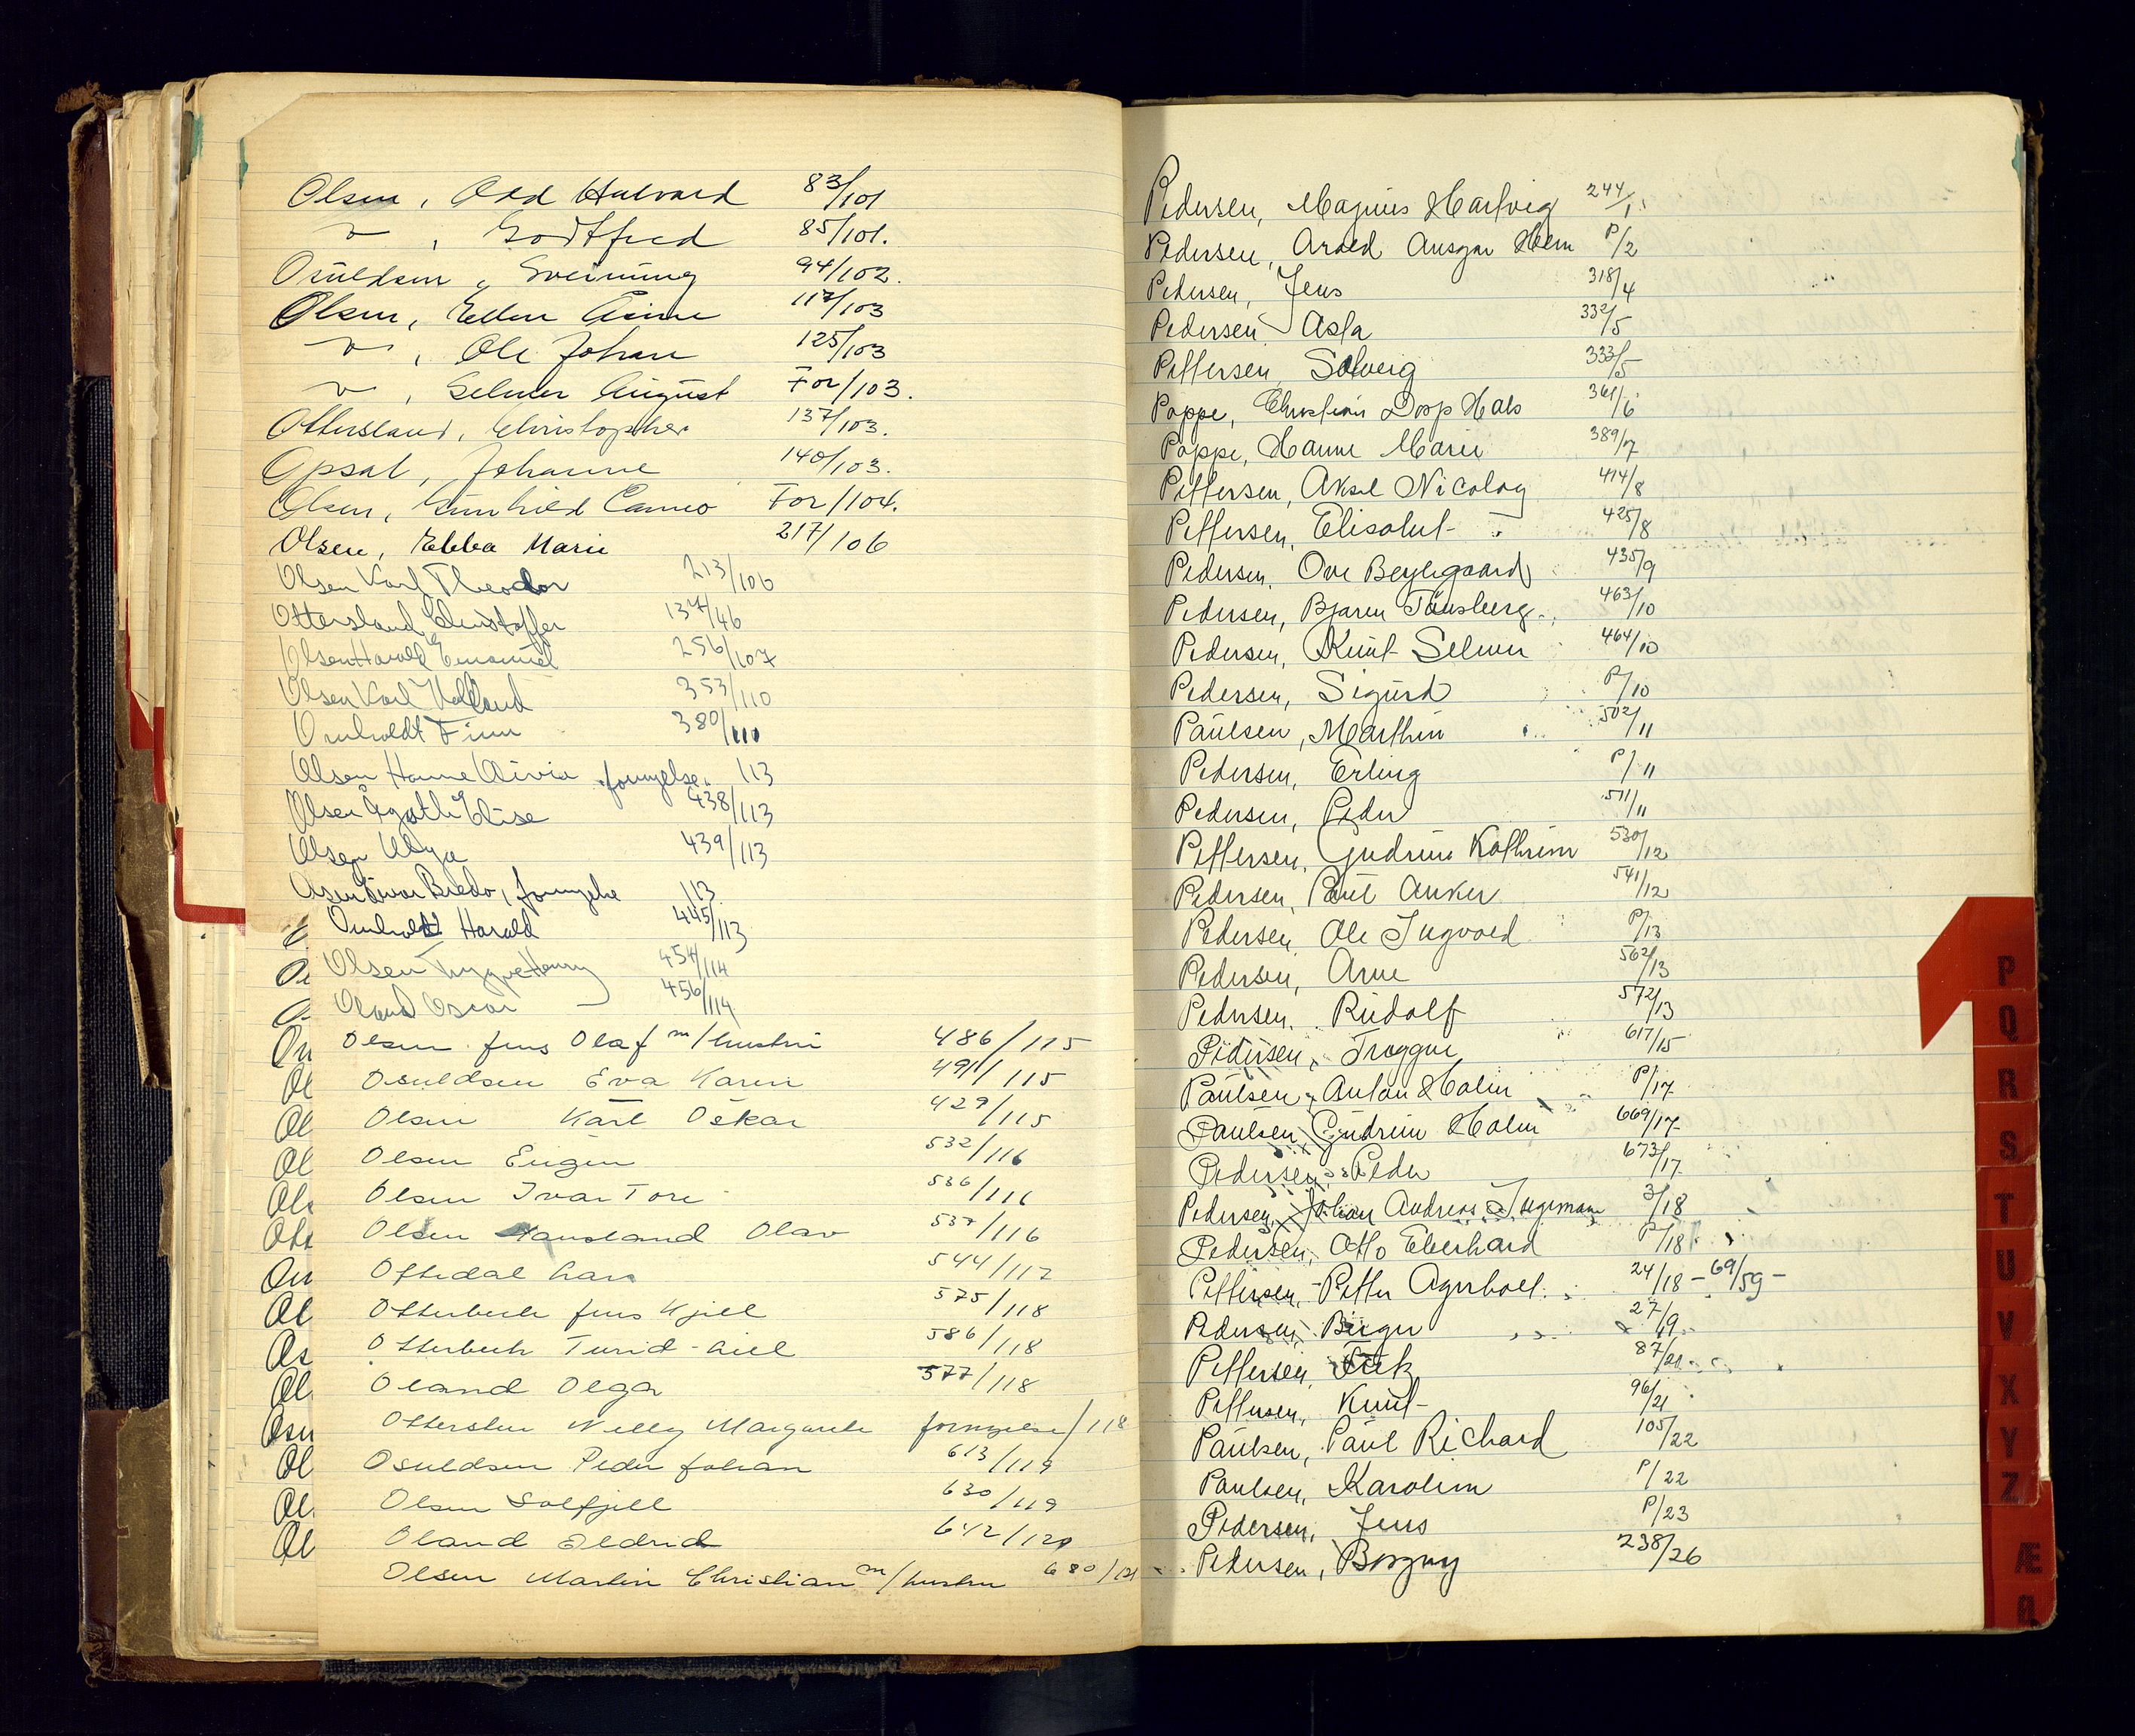 Olsen, Odd Halvard 83/101
" , Godtfred 85/101.
Osuldsen, Sveinung 94/102.
Olsen, Ellen 117/103
" , Ole Johan 125/103
" , Selmer August For/103.
Ottersland, Christopher 137/103.
Opsal, Johanne 140/103.
Olsen, Gunhild For/104.
Olsen, Ebba Marie 217/106
Olsen Karl Theodor 213/106
Ottersland Christoffer 137/46
Olsen Harald Emanuel 256/107
Olsen Karl 353/110
Omholdt Finn 380/110
Olsen Hanne Olivia fornyelse. 113
Olsen Agathe Elise 438/113
Olsen Olga 439/113
Olsen Einar Bredo, fornyelse 113
Omholdt Harald 445/113
Olsen Trygve Henry 454/114
Oland Oscar 456/114
Olsen Jens Olaf m/hustru 486/115
Osuldsen Eva Karin 491/115
Olsen Karl Oskar 429/115
Olsen Eugen 532/116
Olsen Ivar Tore 536/116
Olsen Hausland Olav 537/116
Oftedal Lars 544/117
Otterbech Jens Kjell 575/118
Otterbech Turid 586/118
Oland Olga 577/118
Ottersten Nelly Margarete fornyelse/118
Osuldsen Peder Johan 613/119
Olsen Solfjell 630/119
Oland Eldrid 642/120
Olsen Martin Christian m/hustru 680/121
Pedersen, Magnus Hartvig 244/1
Pedersen, Arild Ansgar Helm P/2
Pedersen, Jens 318/4
Pedersen Asta 332/5
Pettersen Solveig 333/5
Poppe, Christian Dop Hals 361/6
Poppe, Hanne Marie 389/7
Pettersen, Aksel Nicolay 414/8
Pettersen, Elisabet 425/8
Pedersen, Ove Beylegaard 435/9
Pedersen, Bjarne Tønsberg 463/10
Pedersen, Knut Selmer 464/10
Pedersen, Sigurd P/10
Paulsen, Marthin 502/11
Pedersen, Erling P/11
Pedersen, Peder 511/11
Pettersen, Gudrun Kathrine 530/12
Pedersen, Poul Anker 541/12
Pedersen, Ole Ingvald P/13
Pedersen, Arne 562/13
Pedersen, Rudolf 572/13
Pedersen, Tryggve 617/15
Paulsen, Anton Holm P/17
Paulsen, Gudrun Holm 669/17
Pedersen, Peder 673/17
Pedersen, Johan Andreas Ingemann 3/18
Pedersen, Otto Eberhard P/18
Pettersen, Petter Agerholt 24/18 - 69/59 -
Pedersen, Birger 27/19
Pettersen, 87/21
Pettersen, Knut 96/21
Paulsen, Paul Richard 105/22
Paulsen, Karoline P/22
Pedersen, Jens P/23
Pedersen, Borgny 238/26
P
Q
R
S
T
U
V
X
Y
Z
Æ
Ø